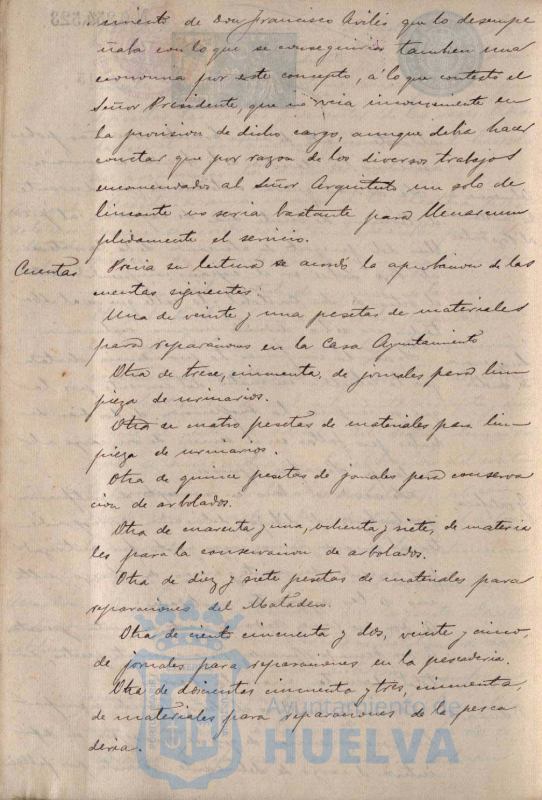 miento de Don Francisco Avilés que lo desempe
ñaba con lo que se conseguiria tambien una
economia por este concepto, á lo que contestó el
Señor Presidente, que no veia inconveniente en
la provision de dicho cargo, aunque debia hacer
constar que por razon de los diversos trabajos
encomendados al Señor Arquitecto un solo de
lineante no seria bastante para llenar cum
plidamente el servicio.
Cuentas
Previa su lectura se acordó la aprobacion de las
cuentas siguientes:
Una de veinte y una pesetas de materiales
para reparaciones en la Casa Ayuntamiento
Otra de trece, cincuenta, de jornales para lim
pieza de urinarios.
Otra de cuatro pesetas de materiales para lim-
pieza de urinarios.
Otra de quince pesetas de jornales para conserva
cion de arbolados.
Otra de cuarenta y una, ochenta y siete, de materia
les para la conservacion de arbolados.
Otra de diez y siete pesetas de materiales para
reparaciones del Matadero.
Otra de ciento cincuenta y dos, veinte y cinco,
de jornales para reparaciones en la pescaderia.
Otra de doscientas cincuenta y tres, cincuenta,
de materiales para reparaciones de la pesca
deria.
Ayuntamiento de
HUELVA